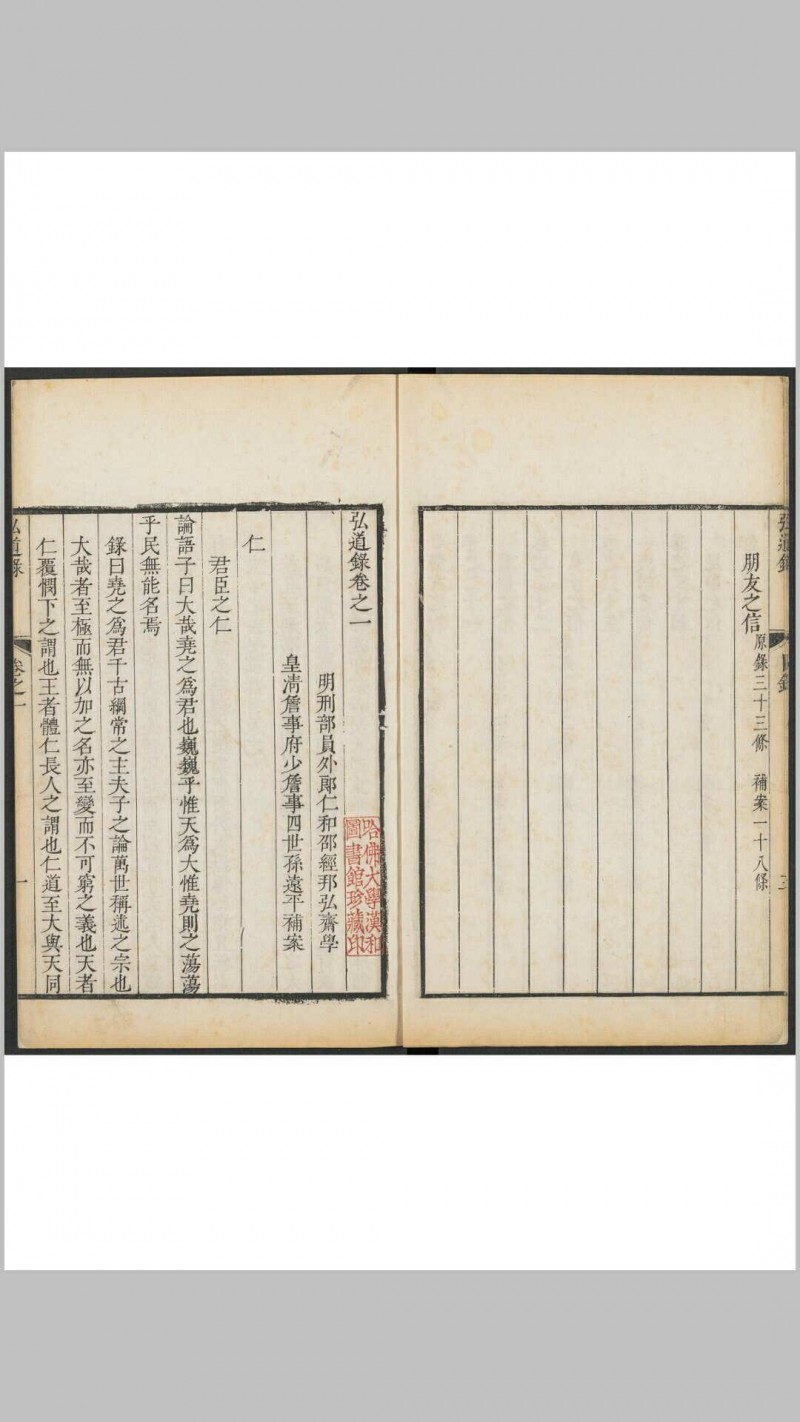 朋友之信 原錄三十三條 補案一十八條
弘道錄卷之一
明刑部員外郎仁和邵經邦弘齋學
皇清詹事府少詹事四世孫遠平補案
仁
君臣之仁
論語子曰大哉堯之為君也巍巍乎惟天為大惟堯則之蕩蕩
乎民無能名焉
錄曰堯之為君千古綱常之主夫子之論萬世稱述之宗也
大哉者至極而無以加之名亦至變而不可窮之義也天者
仁覆憫下之謂也王者體仁長人之謂也仁道至大與天同
弘道錄 卷之一 一
哈佛大學漢和
圖書館珍藏印